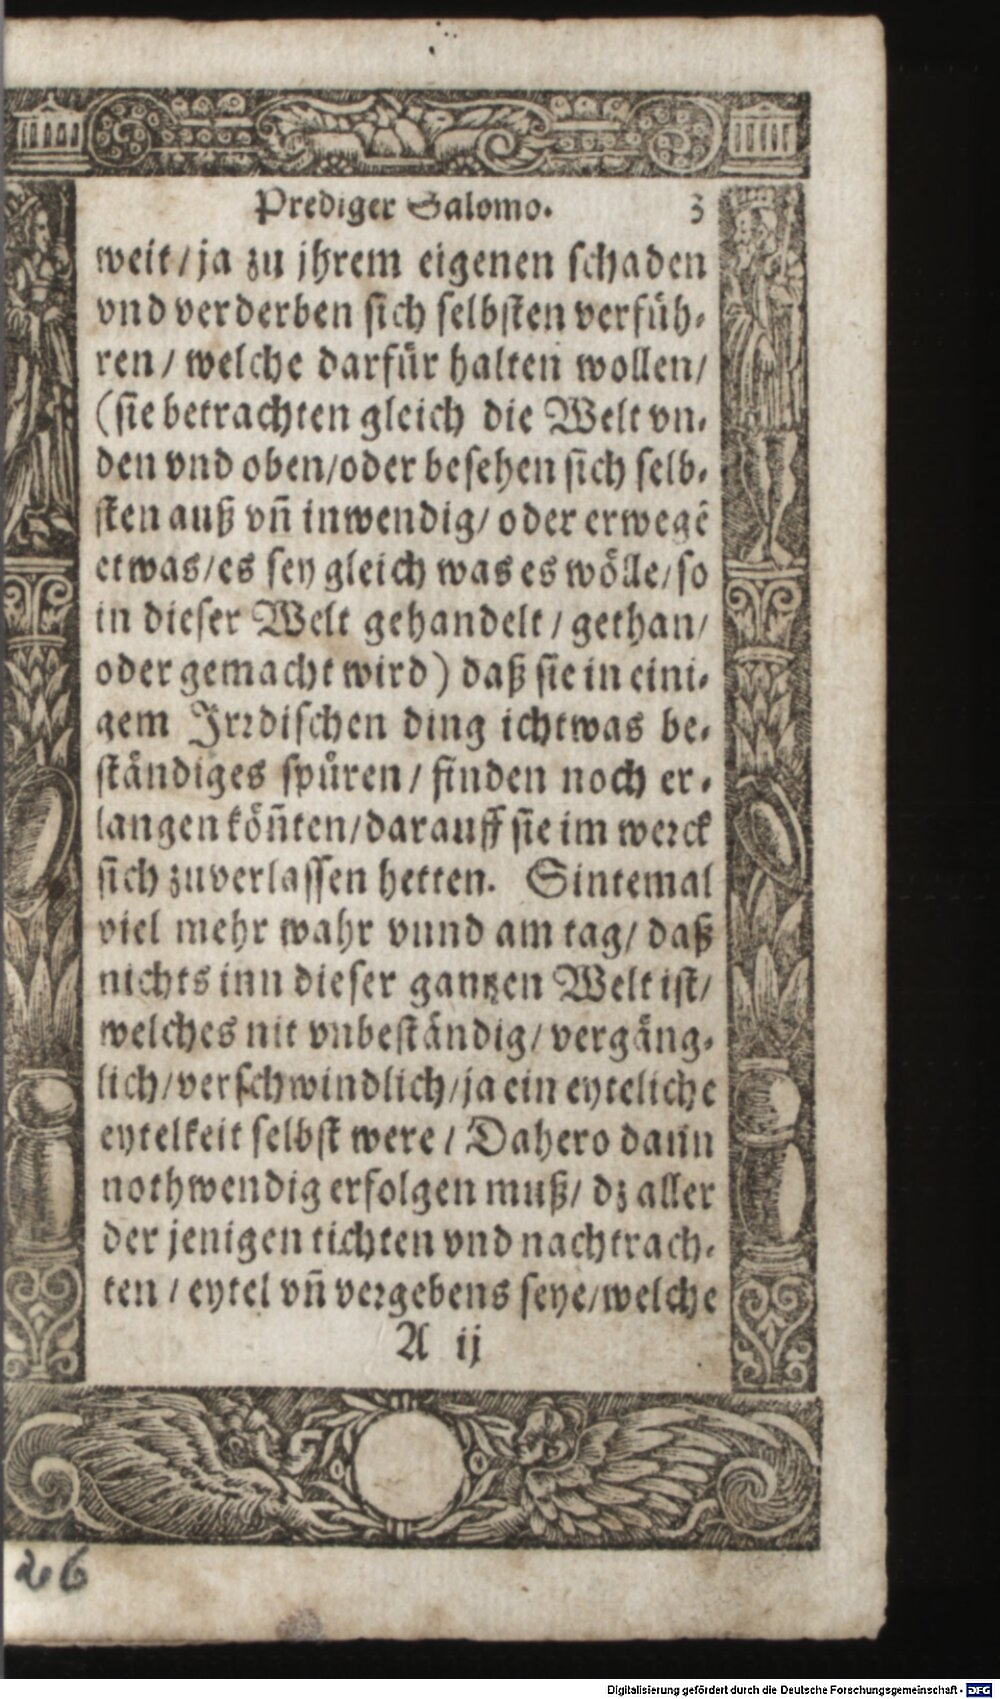 Prediger Salomo. 3
weit / ja zu jhrem eigenen schaden
vnd verderben sich selbsten verfüh-
ren / welche darfür halten wollen /
(sie betrachten gleich die Welt vn-
den vnd oben / oder besehen sich selb-
sten auß vñ inwendig / oder erwegẽ
etwas / es sey gleich was es wölle / so
in dieser Welt gehandelt / gethan /
oder gemacht wird) daß sie in eini-
gem Jrꝛdischen ding ichtwas be-
ständiges spüren / finden noch er-
langen köñten / darauff sie im weꝛck
sich zuverlassen hetten. Sintemal
viel mehr wahr vnnd am tag / daß
nichts inn dieser gantzen Welt ist /
welches nit vnbeständig / vergäng-
lich / verschwindlich / ja ein eyteliche
eytelkeit selbst were / Dahero dann
nothwendig erfolgen muß / dz aller
der jenigen tichten vnd nachtrach-
ten / eytel vñ veꝛgebens seye / welche
A ij
26
Digitalisierung gefördert durch die Deutsche Forschungsgemeinschaft - DFG